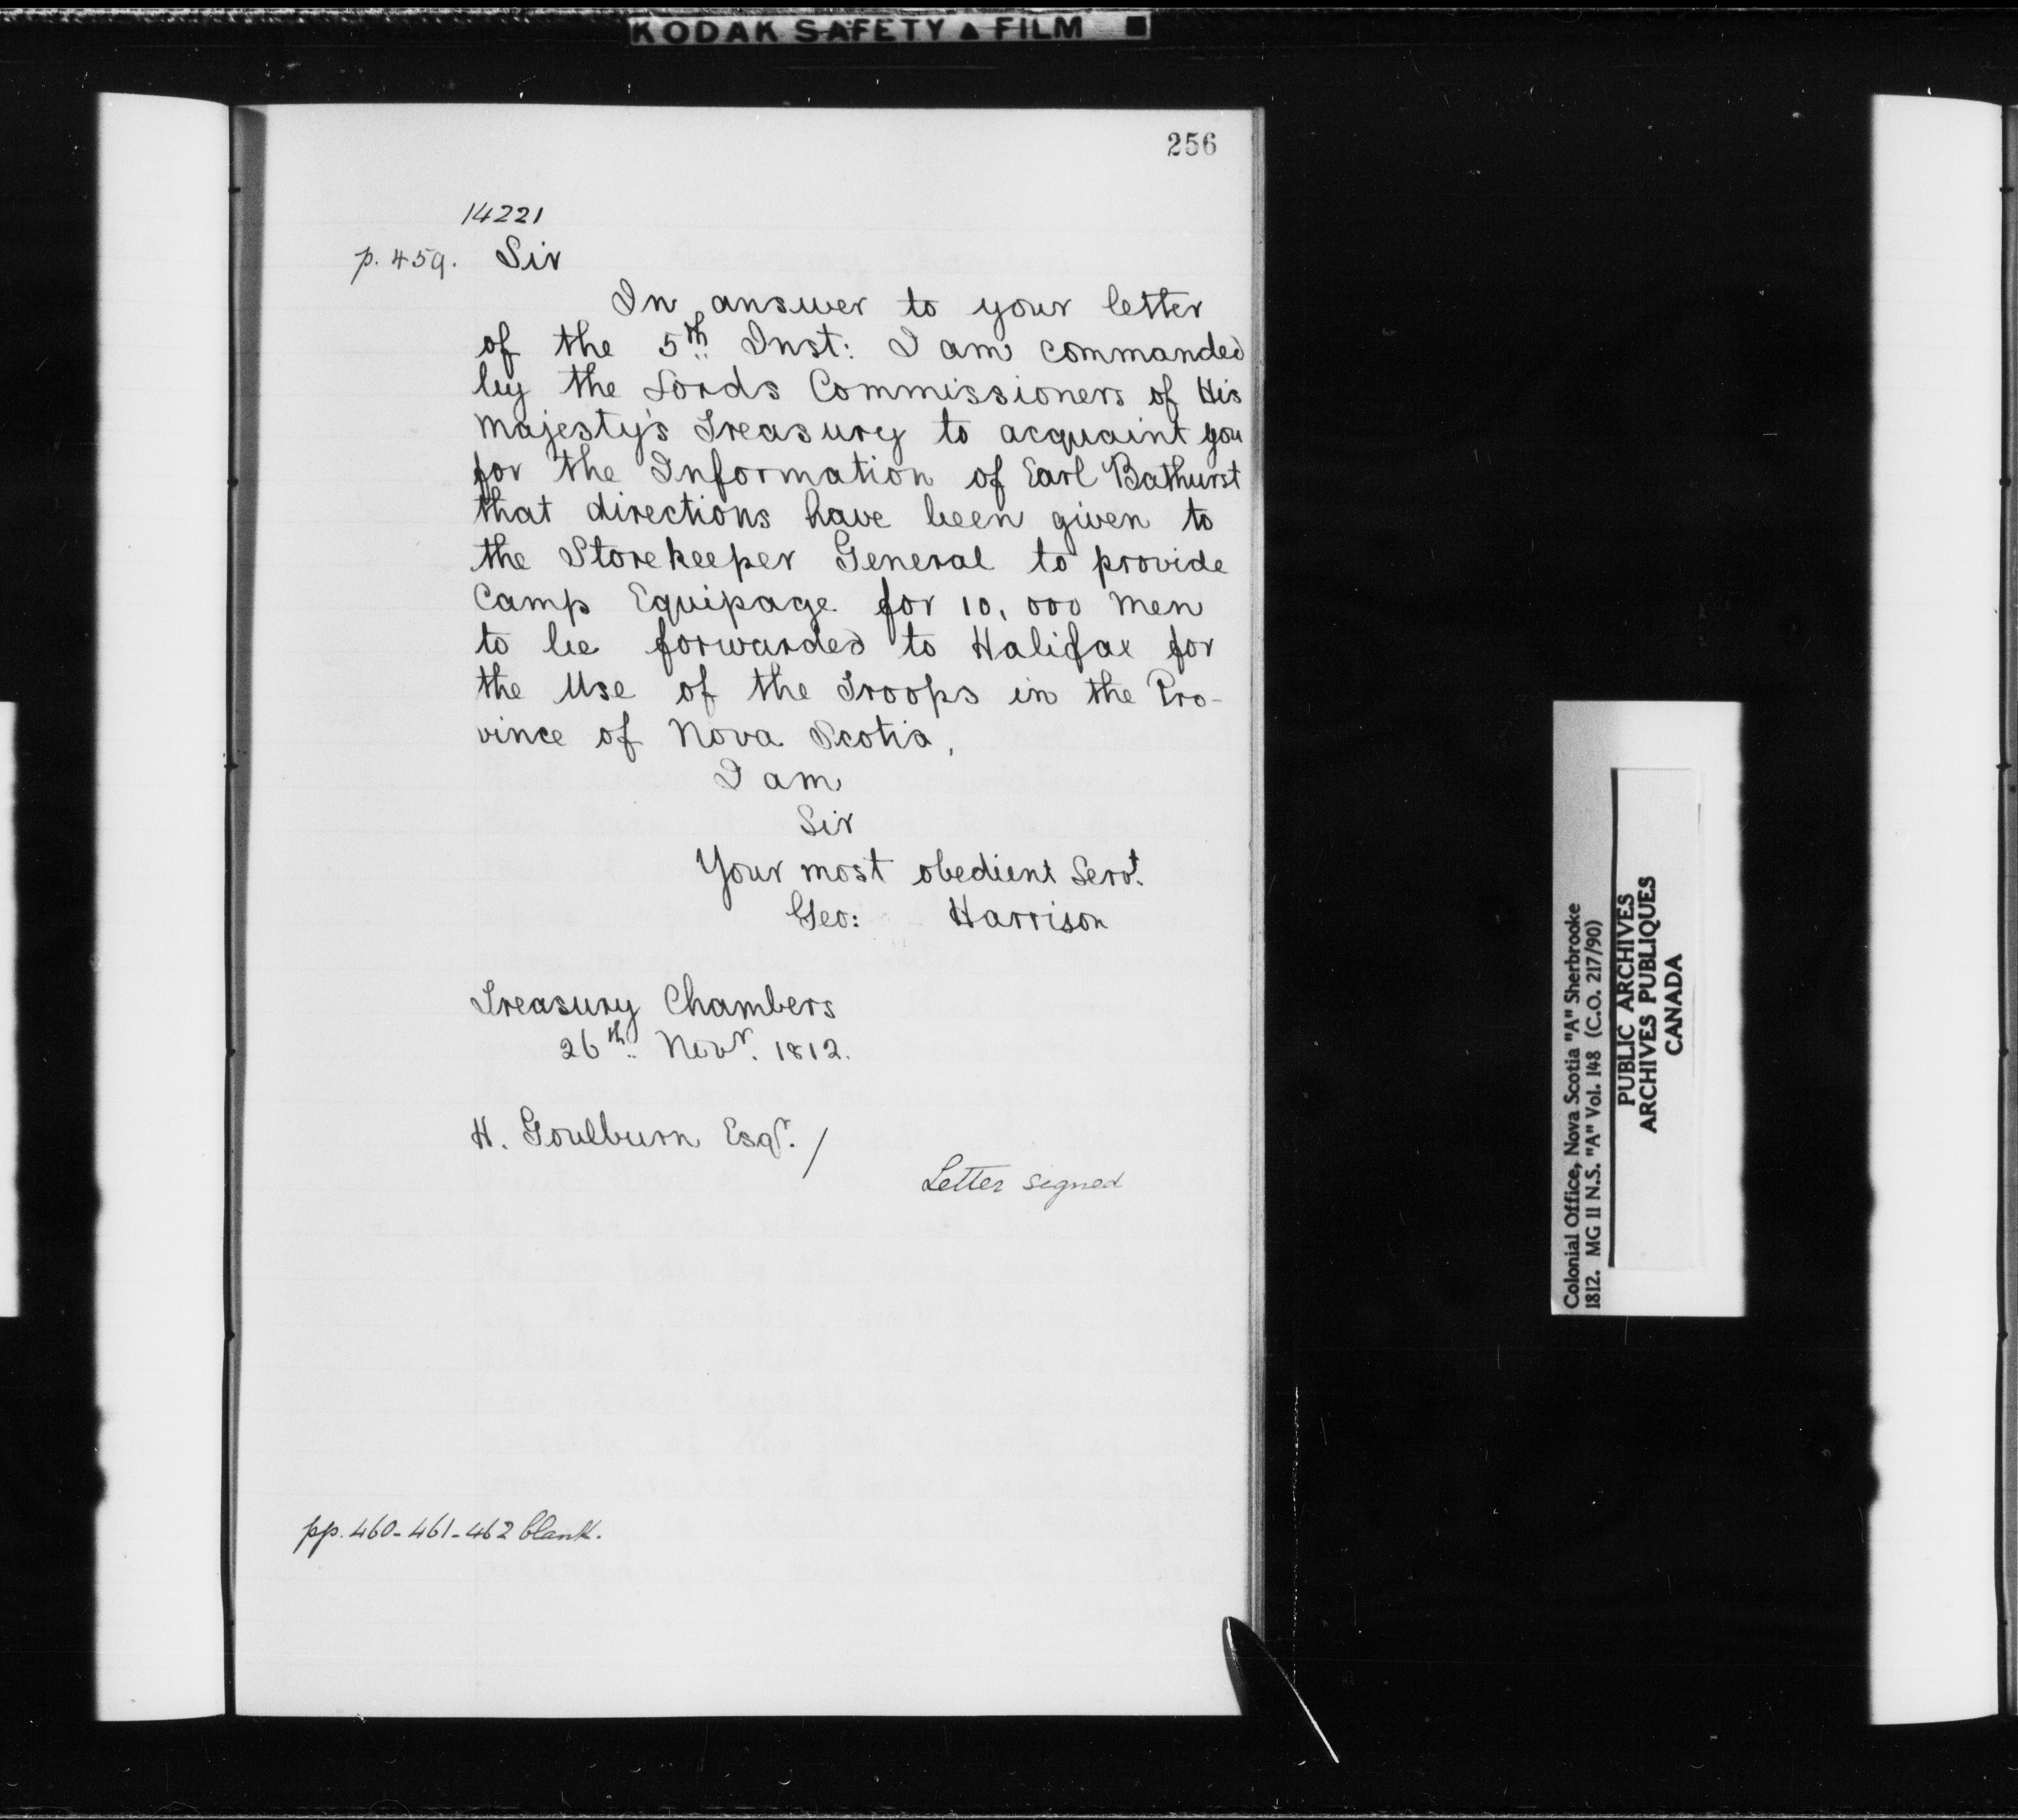 KODAK SAFETY ▲ FILM
256
14221
p. 459. Sir
In answer to your letter
of the 5th Inst: I am commanded
by the Lords Commissioners of His
Majesty's Treasury to acquaint you
for the Information of Earl Bathurst
that directions have been given to
the Storekeeper General to provide
Camp Equipage for 10,000 Men
to be forwarded to Halifax for
the Use of the Troops in the Pro-
vince of Nova Scotia,
I am
Sir
Your most obedient Servt.
Geo: Harrison
Treasury Chambers
26th Novr. 1812.
H. Goulburn Esqr. /
Letter signed
pp. 460-461-462 blank.
Colonial Office, Nova Scotia "A" Sherbrooke
1812. MG 11 N.S. "A" Vol. 148 (C.O. 217/90)
PUBLIC ARCHIVES
ARCHIVES PUBLIQUES
CANADA